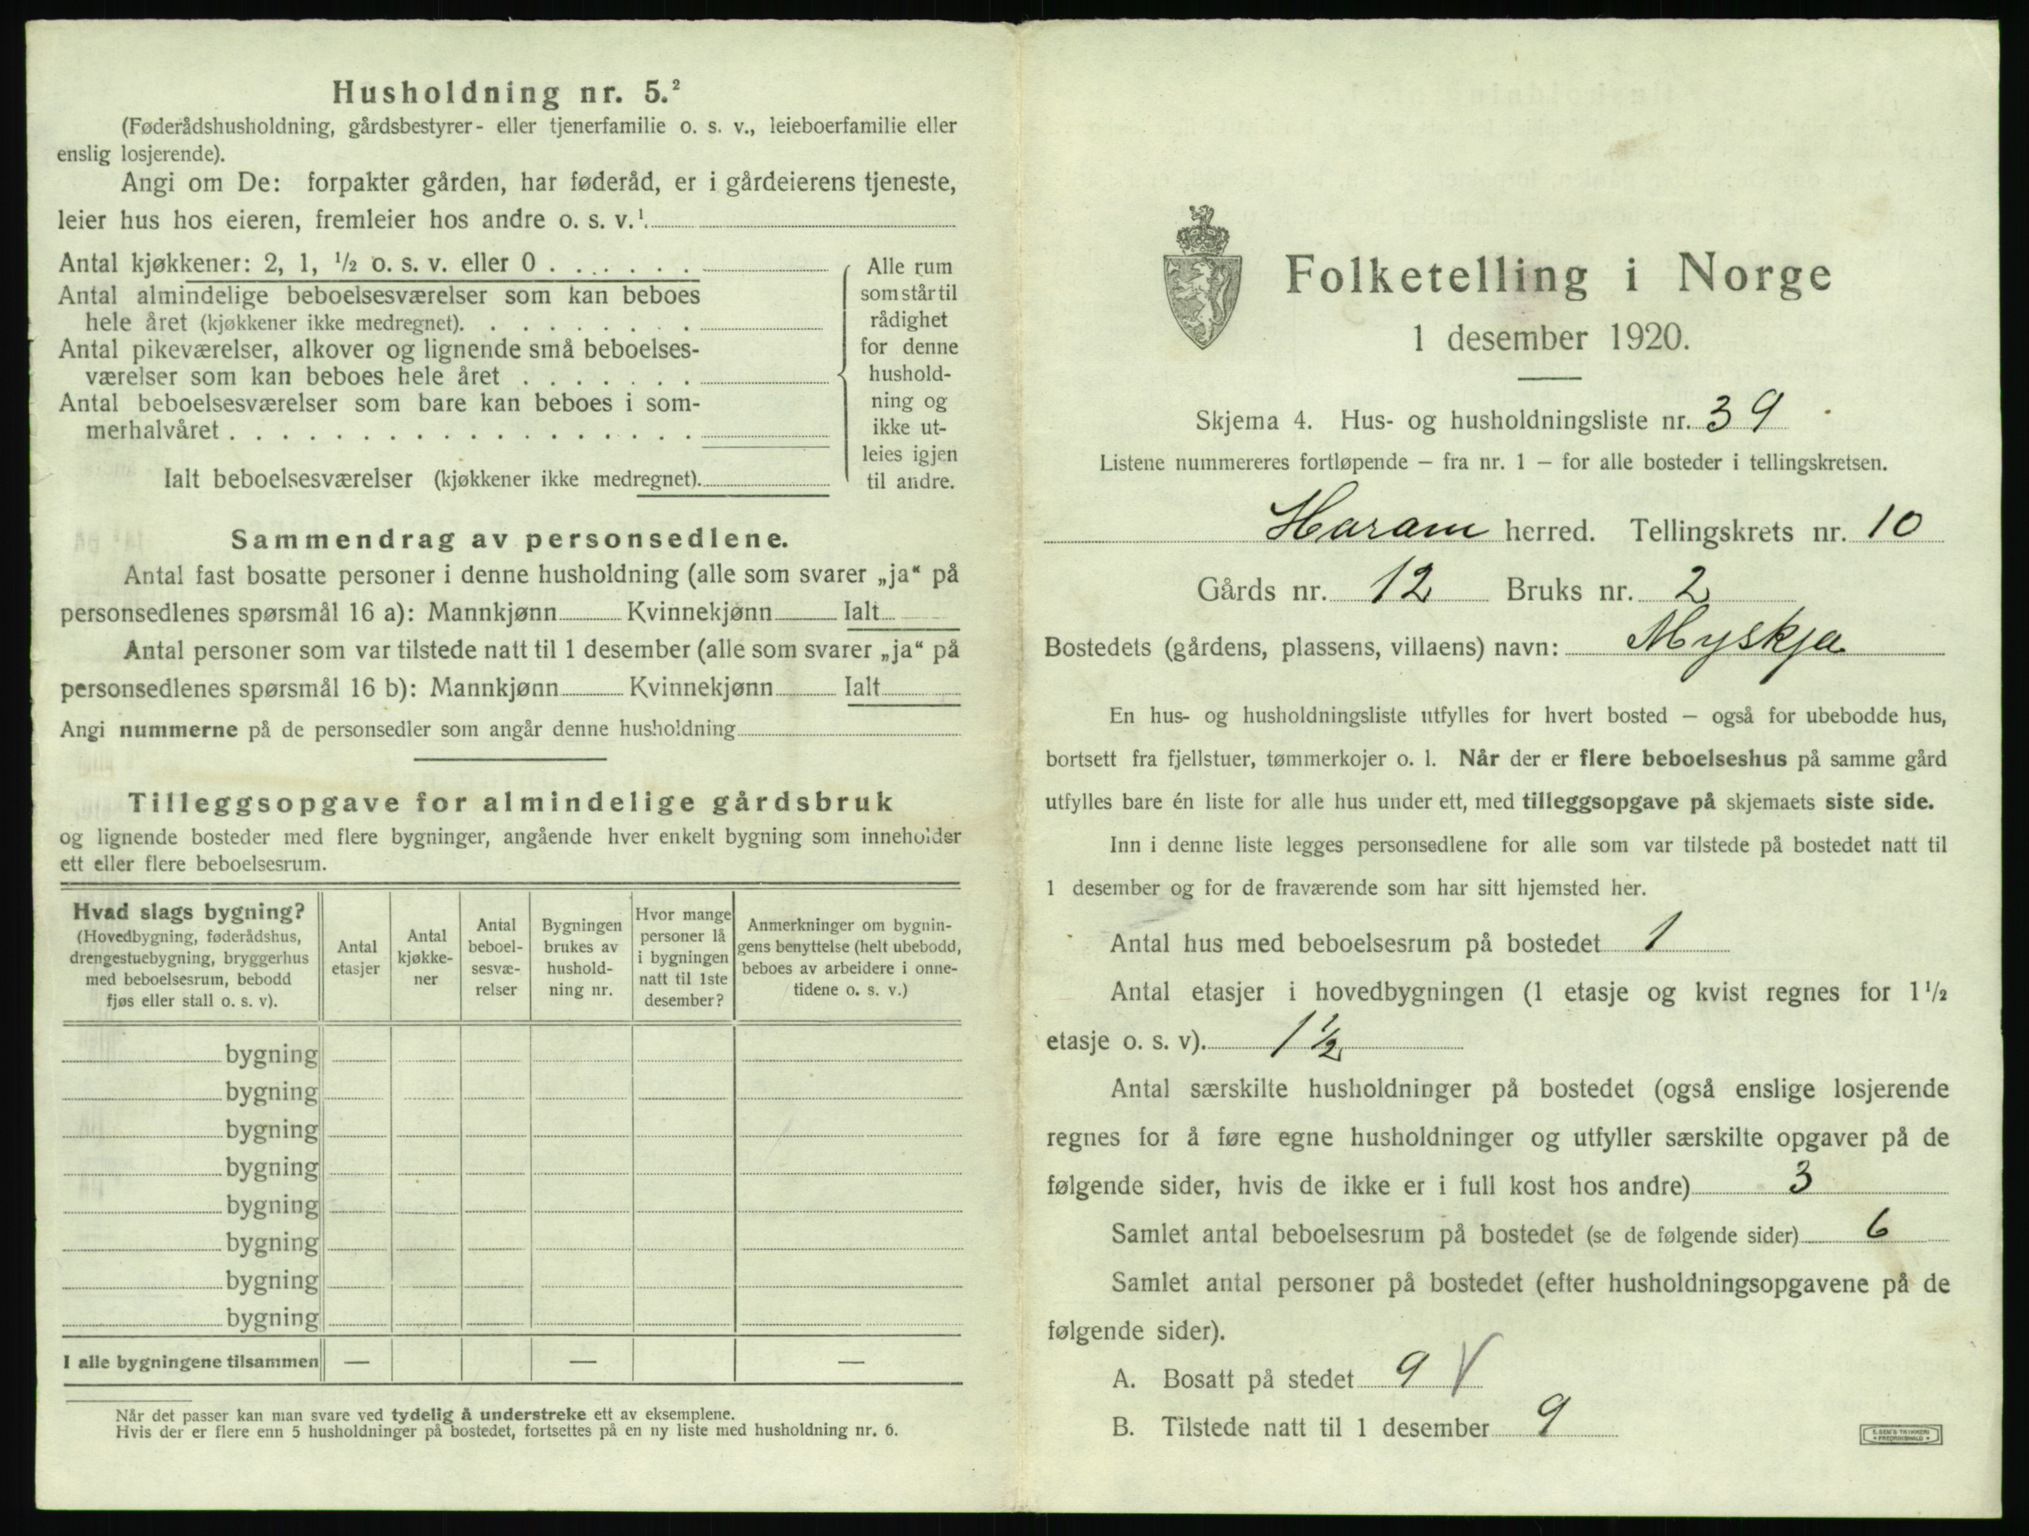 Husholdning nr. 5.²
(Føderådshusholdning, gårdsbestyrer- eller tjenerfamilie o. s. v., leieboerfamilie eller
enslig losjerende).
Angi om De: forpakter gården, har føderåd, er i gårdeierens tjeneste,
leier hus hos eieren, fremleier hos andre o. s. v.¹
Antal kjøkkener: 2, 1, ½ o. s. v. eller 0 . . . . . .
Antal almindelige beboelsesværelser som kan beboes
hele året (kjøkkener ikke medregnet). . . . . . . . .
Antal pikeværelser, alkover og lignende små beboelses-
værelser som kan beboes hele året . . . . . . .
Antal beboelsesværelser som bare kan beboes i som-
merhalvåret . . . . . . . . . . . . . . . . . .
Ialt beboelsesværelser (kjøkkener ikke medregnet).
Alle rum
som står til
rådighet
for denne
hushold-
ning og
ikke ut-
leies igjen
til andre.
Sammendrag av personsedlene.
Antal fast bosatte personer i denne husholdning (alle som svarer „ja“ på
personsedlenes spørsmål 16 a): Mannkjønn Kvinnekjønn Ialt
Antal personer som var tilstede natt til 1 desember (alle som svarer „ja“ på
personsedlenes spørsmål 16 b): Mannkjønn Kvinnekjønn Ialt
Angi nummerne på de personsedler som angår denne husholdning
Tilleggsopgave for almindelige gårdsbruk
og lignende bosteder med flere bygninger, angående hver enkelt bygning som inneholder
ett eller flere beboelsesrum.
Hvad slags bygning?
(Hovedbygning, føderådshus,
drengestuebygning, bryggerhus
med beboelsesrum, bebodd
fjøs eller stall o. s. v).
Antal
etasjer
Antal
kjøkke-
ner
Antal
beboel-
sesvæ-
relser
Bygningen
brukes av
hushold-
ning nr.
Hvor mange
personer lå
i bygningen
natt til 1ste
desember?
Anmerkninger om bygnin-
gens benyttelse (helt ubebodd,
beboes av arbeidere i onne-
tidene o. s. v.)
bygning
bygning
bygning
bygning
bygning
bygning
bygning
bygning
I alle bygningene tilsammen — — —
Når det passer kan man svare ved tydelig å understreke ett av eksemplene.
Hvis der er flere enn 5 husholdninger på bostedet, fortsettes på en ny liste med husholdning nr. 6.
Folketelling i Norge
1 desember 1920.
Skjema 4. Hus- og husholdningsliste nr. 39
Listene nummereres fortløpende – fra nr. 1 – for alle bosteder i tellingskretsen.
Haram herred. Tellingskrets nr. 10
Gårds nr. 12 Bruks nr. 2
Bostedets (gårdens, plassens, villaens) navn: Myskja
En hus- og husholdningsliste utfylles for hvert bosted – også for ubebodde hus,
bortsett fra fjellstuer, tømmerkojer o. l. Når der er flere beboelseshus på samme gård
utfylles bare én liste for alle hus under ett, med tilleggsopgave på skjemaets siste side.
Inn i denne liste legges personsedlene for alle som var tilstede på bostedet natt til
1 desember og for de fraværende som har sitt hjemsted her.
Antal hus med beboelsesrum på bostedet 1
Antal etasjer i hovedbygningen (1 etasje og kvist regnes for 1½
etasje o. s. v). 1½
Antal særskilte husholdninger på bostedet (også enslige losjerende
regnes for å føre egne husholdninger og utfyller særskilte opgaver på de
følgende sider, hvis de ikke er i full kost hos andre) 3
Samlet antal beboelsesrum på bostedet (se de følgende sider) 6
Samlet antal personer på bostedet (efter husholdningsopgavene på de
følgende sider).
A. Bosatt på stedet 9
B. Tilstede natt til 1 desember 9